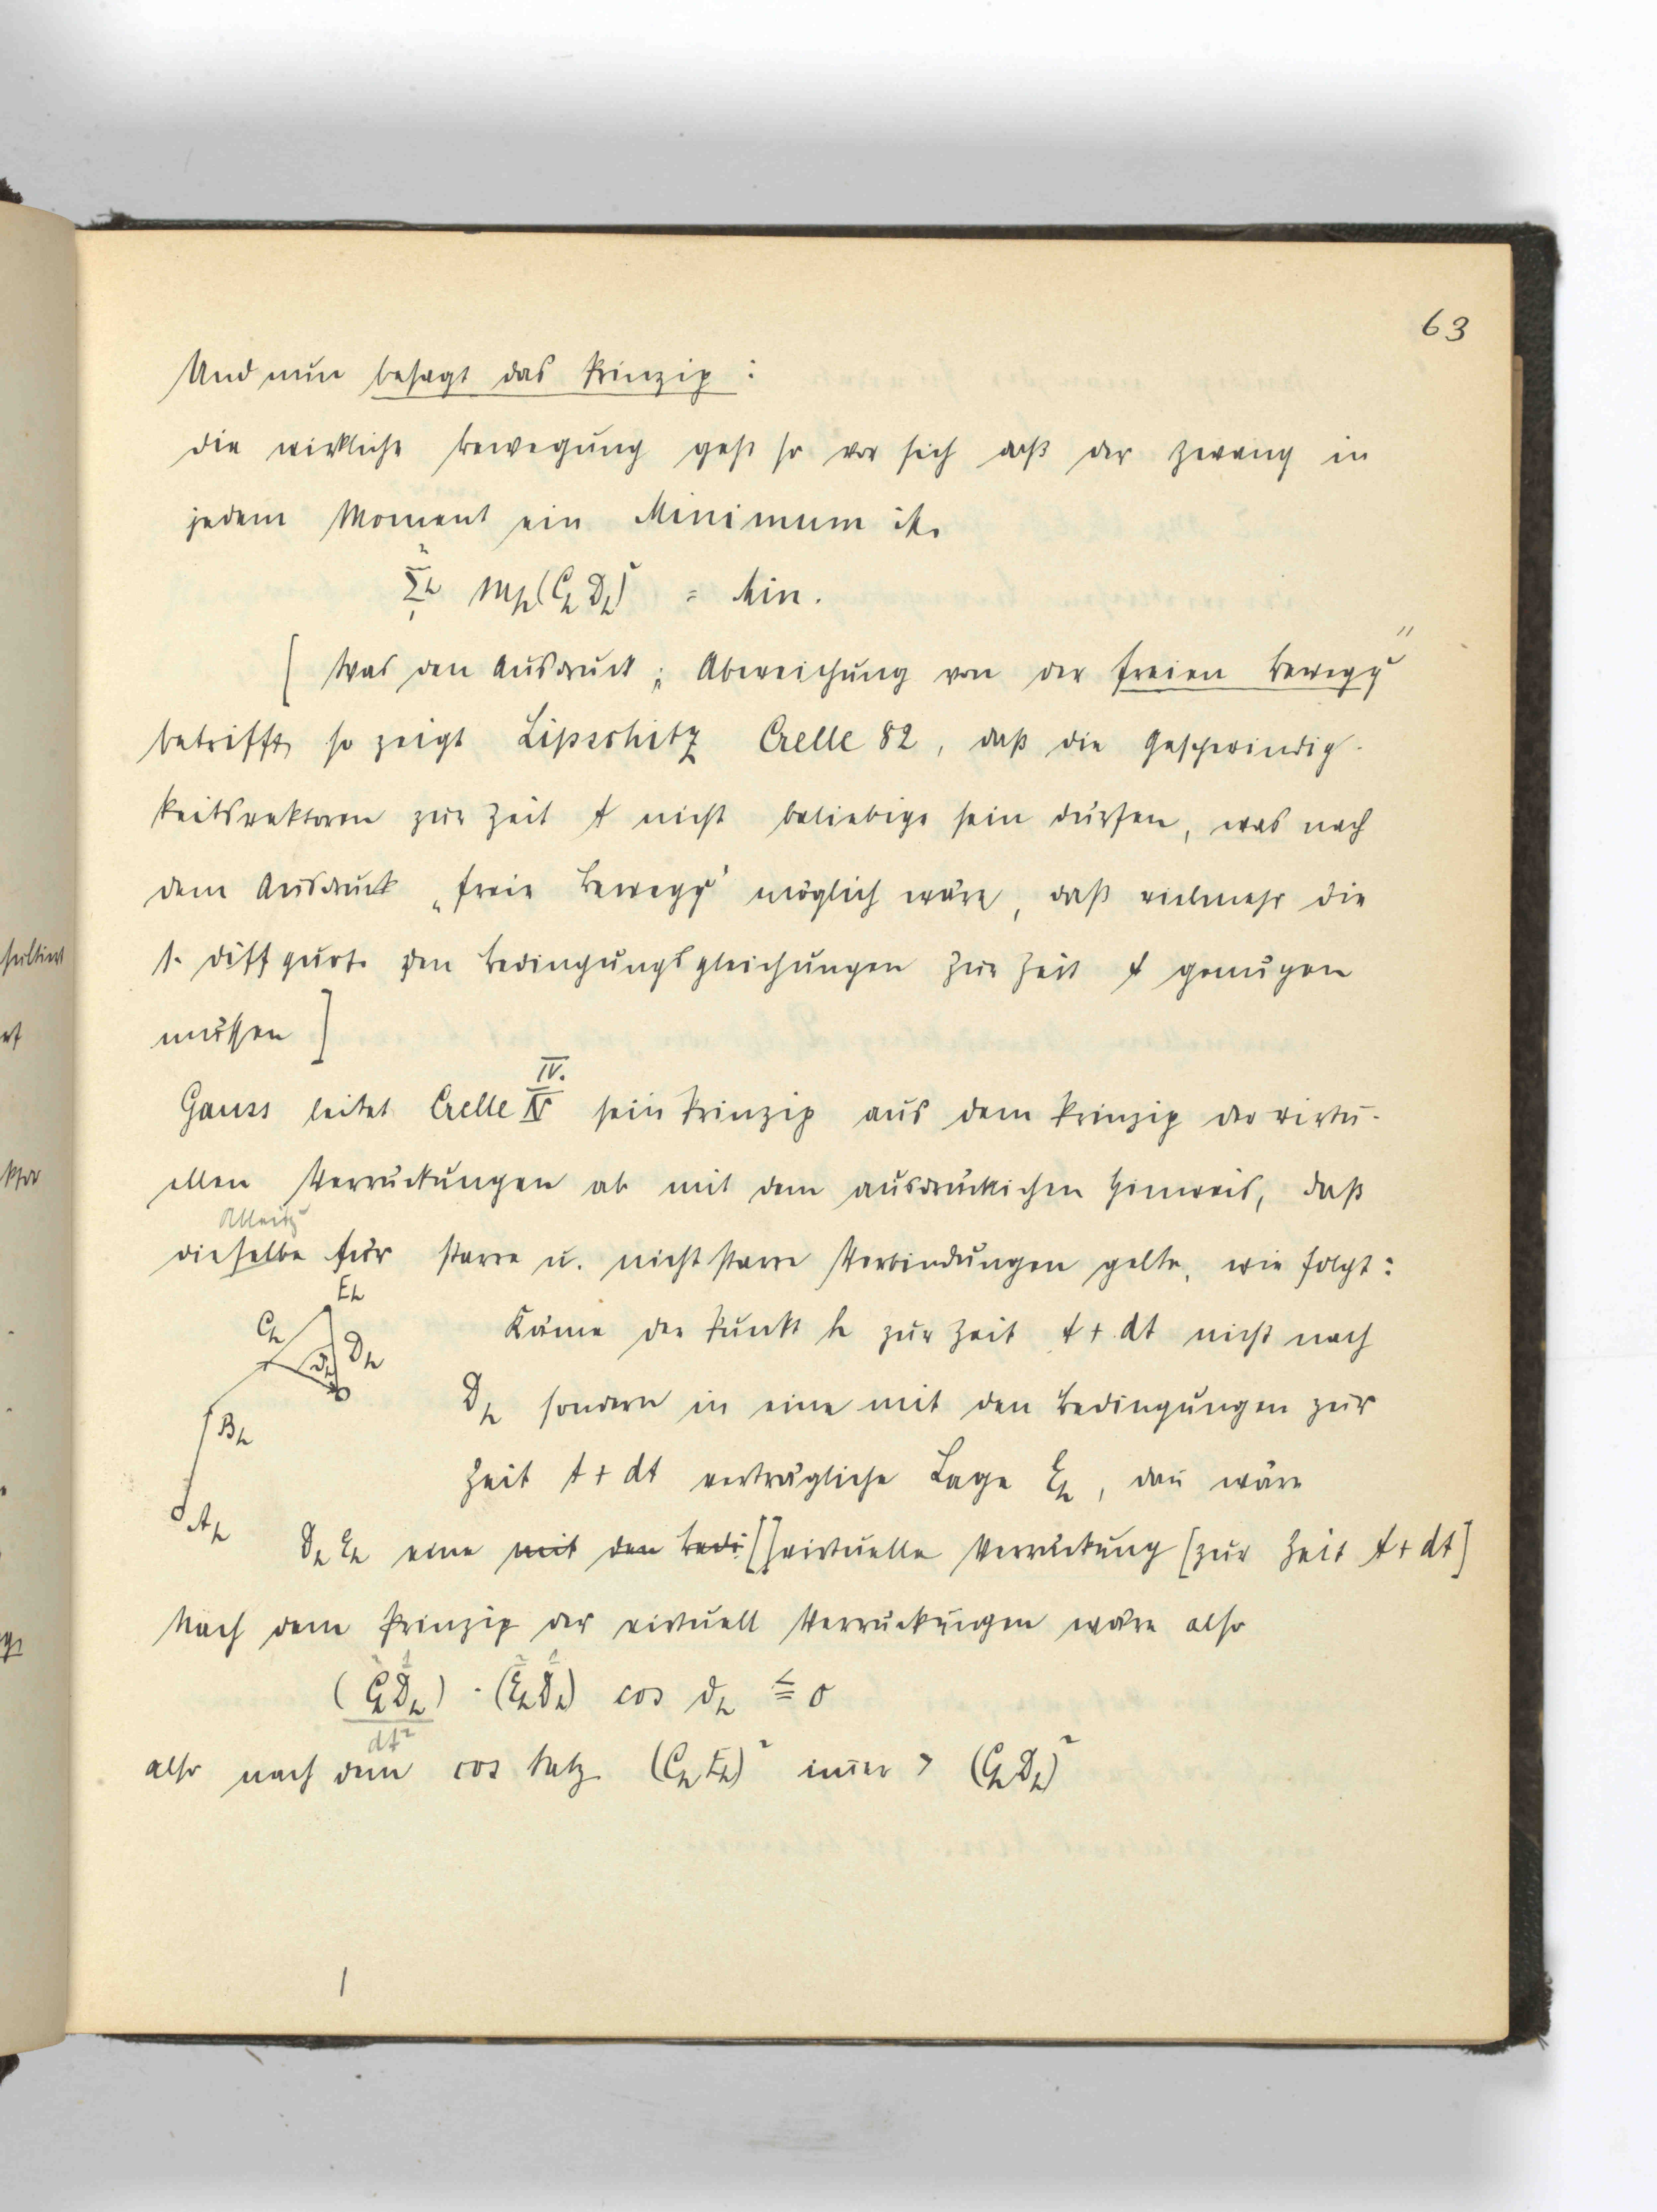 63
Und nun besagt das Prinzip :
die wirkliche Bewegung geht so vor sich daß der Zwang in
jedem Moment ein Minimum ist.
Σₕ mₕ(CₕDₕ)² = Min.
[ Was den Ausdruck „ Abweichung von der freien Bewegg"
betrifft, so zeigt Lipschitz Crelle 82, daß die Geschwindig-
keitsvektoren zur Zeit t nicht beliebige sein dürfen, was nach
dem Ausdruck „freie Bewegg" möglich wäre, daß vielmehr die
1. Diff quot. den Bedingungsgleichungen zur Zeit t genügen
müssen ]
IV.
Gauss leitet Crelle IV sein Prinzip aus dem Prinzip der virtu-
ellen Verrückungen ab mit dem ausdrücklichen Hinweis, daß
Ableitg
dieselbe für starre u. nicht starre Verbindungen gelte, wie folgt:
Eₕ
Cₕ
Dₕ
ϑₕ
Bₕ
Aₕ
Käme der Punkt h zur Zeit t + dt nicht nach
Dₕ sondern in eine mit den Bedingungen zur
Zeit t + dt verträgliche Lage Eₕ, dañ wäre
DₕEₕ eine mit den Bedi [] virtuelle Verrückung [zur Zeit t + dt]
Nach dem Prinzip der virtuell Verrückungen wäre also
(CₕDₕ) · (EₕDₕ) cos ϑₕ ≦ 0
dt²
also nach dem cos Satz (CₕEₕ)² im̄er > (CₕDₕ)²